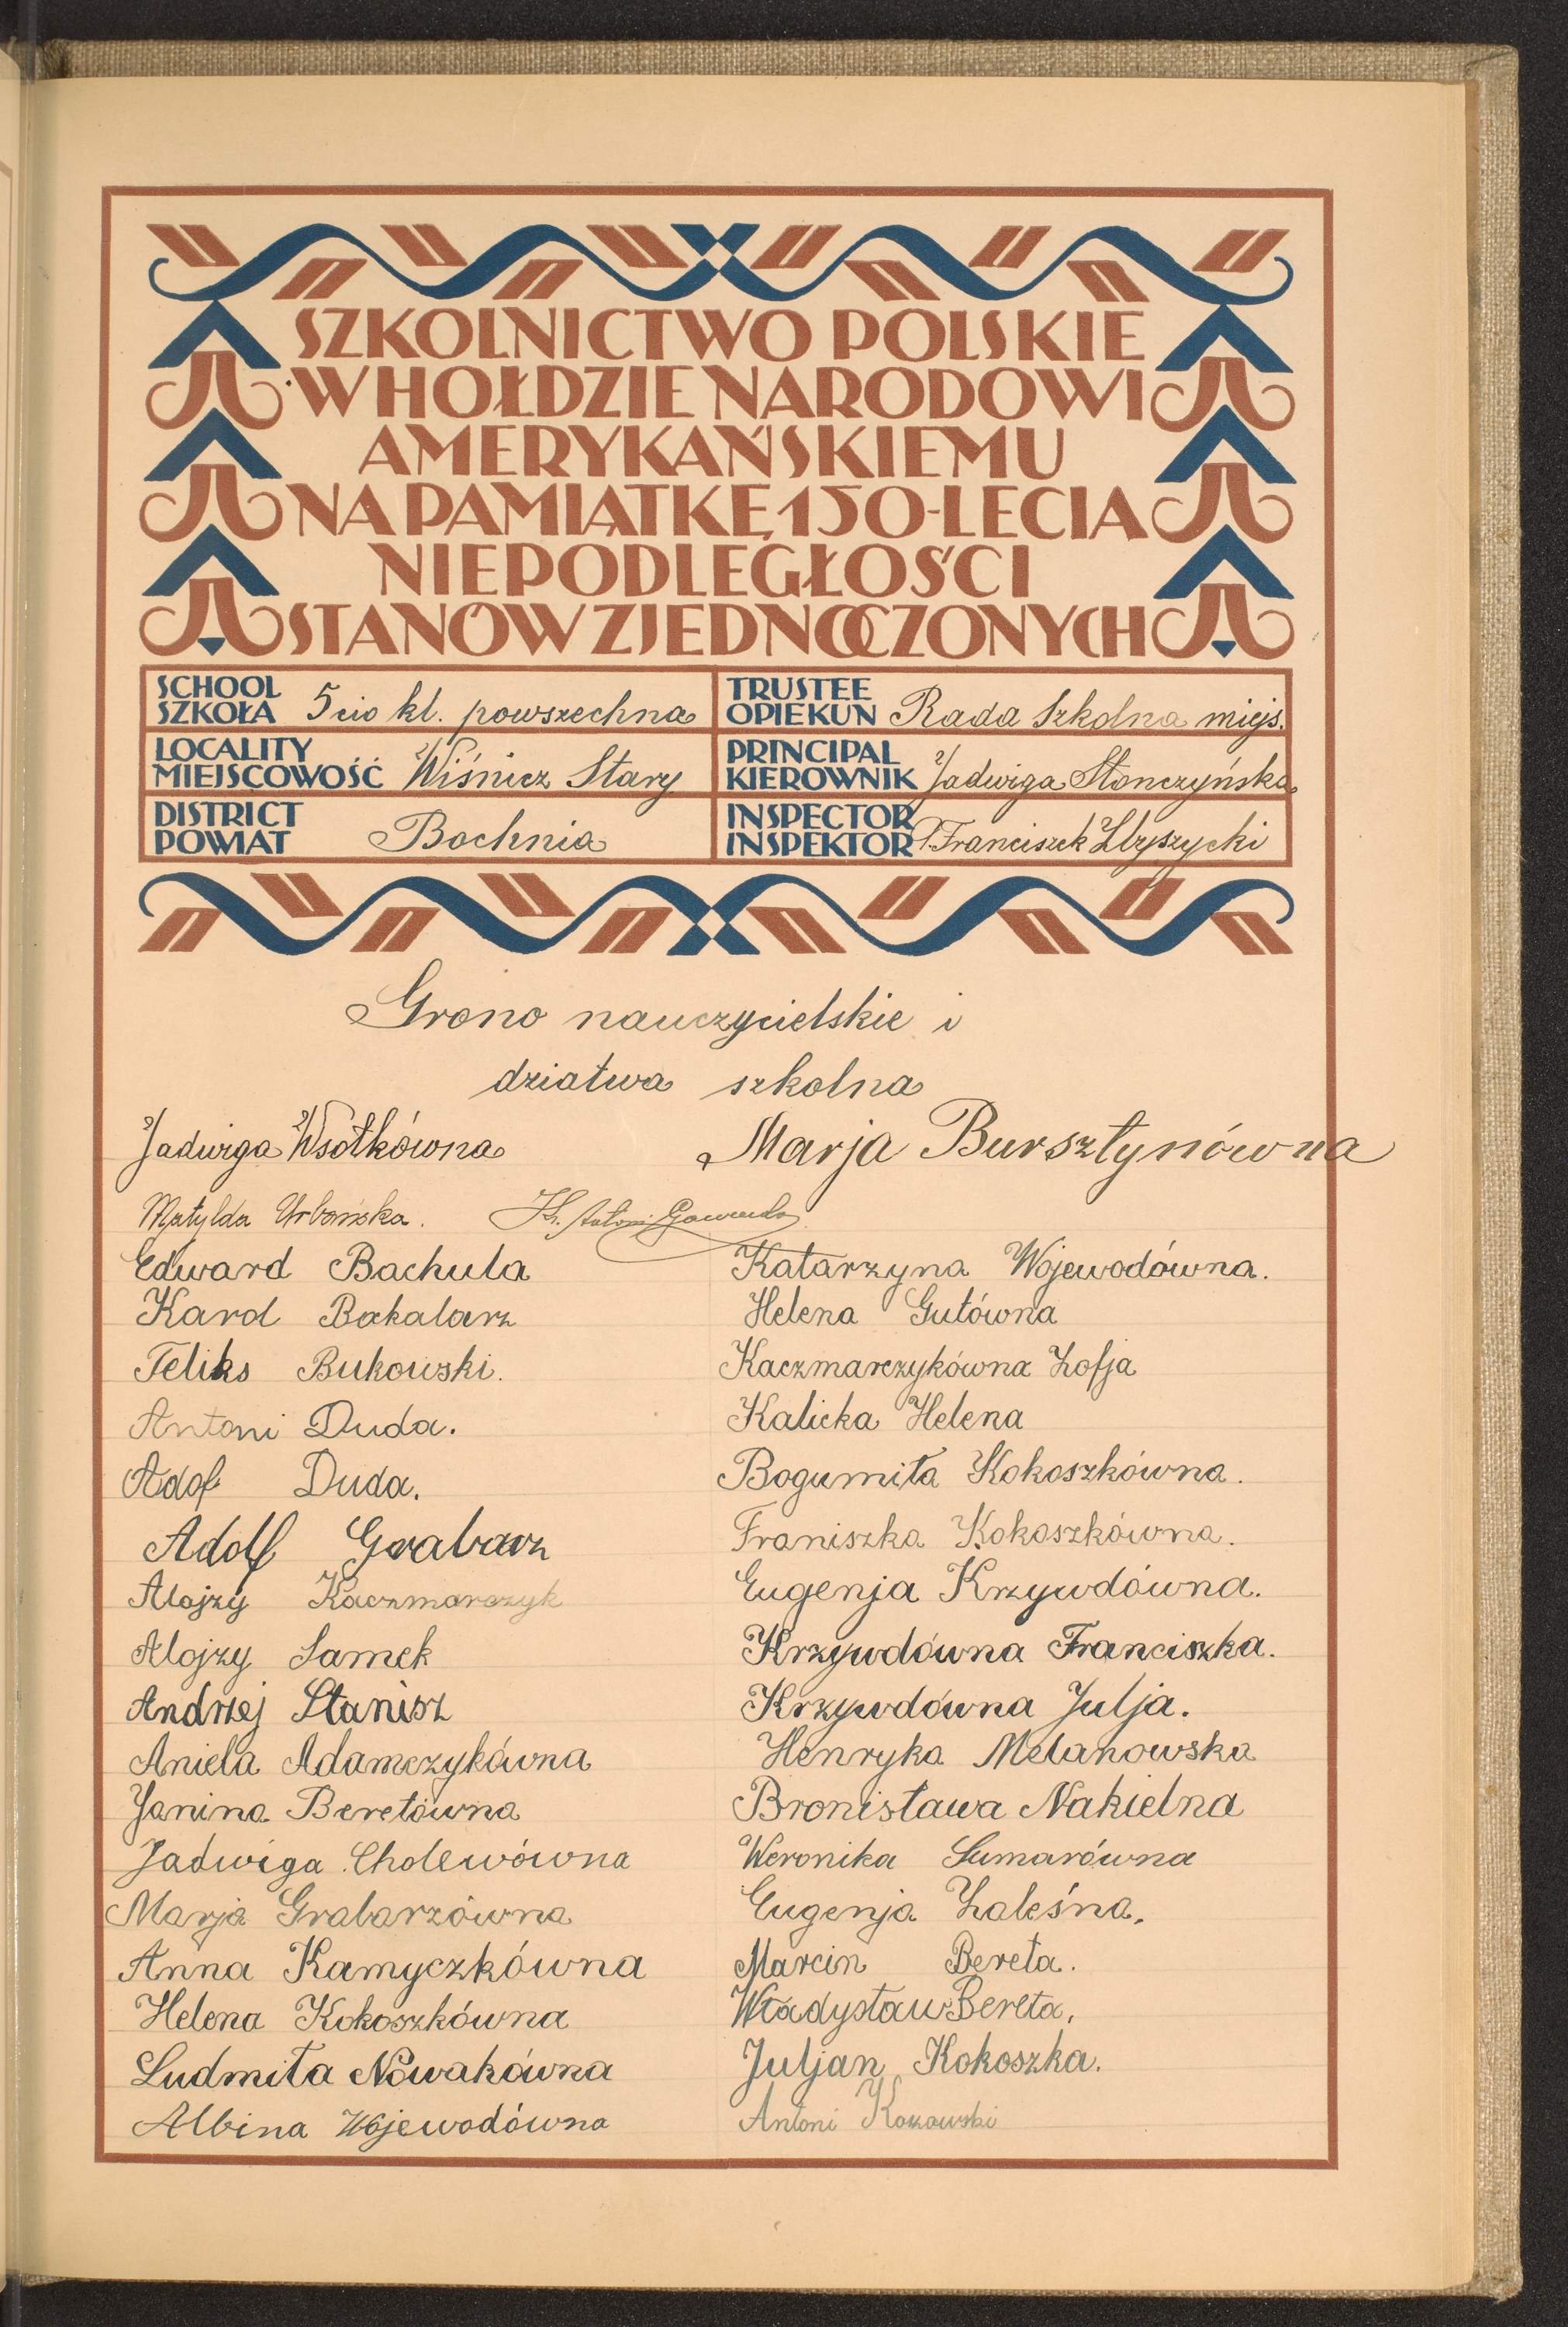 SZKOLNICTWO POLSKIE
W HOŁDZIE NARODOWI
AMERYKAŃSKIEMU
NA PAMIĄTKĘ 150-LECIA
NIEPODLEGŁOŚCI
STANÓW ZJEDNOCZONYCH
SCHOOL
SZKOŁA 5cio kl. powszechna
TRUSTEE
OPIEKUN Rada Szkolna miejs.
LOCALITY
MIEJSCOWOŚĆ Wiśnicz Stary
PRINCIPAL
KIEROWNIK Jadwiga Stonczyńska
DISTRICT
POWIAT Bochnia
INSPECTOR
INSPEKTOR P. Franciszek Zbyszycki
Grono nauczycielskie i
dziatwa szkolna
Jadwiga Wsołkówna
Marja Bursztynówna
Matylda Urbańska.
Ks. Antoni
Edward Bachula
Karol Bakalarz
Feliks Bukowski.
Antoni Duda.
Adolf Duda.
Adolf Grabarz
Alojzy Kaczmarczyk
Alojzy Samek
Andrzej Stanisz
Aniela Adamczykówna
Janina Beretówna
Jadwiga Cholewówna
Marja Grabarzówna
Anna Kamyczkówna
Helena Kokoszkówna
Ludmiła Nowakówna
Albina Wojewodówna
Katarzyna Wojewodówna.
Helena Gutówna
Kaczmarczykówna Zofja
Kalicka Helena
Bogumiła Kokoszkówna.
Franiszka Kokoszkówna.
Eugenja Krzywdówna.
Krzywdówna Franciszka.
Krzywdówna Julja.
Henryka Melanowska
Bronisława Nakielna
Weronika Sumarówna
Eugenja Zaleśna.
Marcin Bereta.
Władysław Bereta.
Juljan Kokoszka.
Antoni